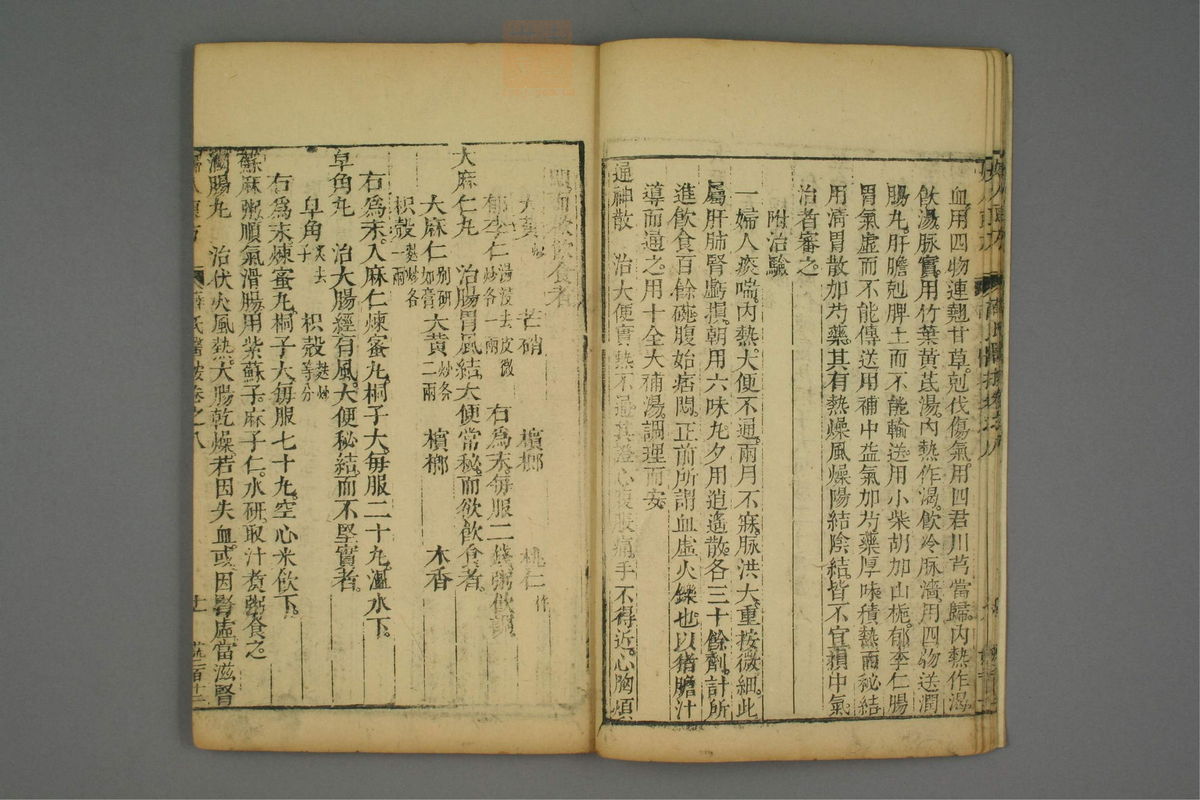 血用四物連翹甘草。剋伐傷氣。用四君川芎當歸。內熱作渴。
飲湯脉實。用竹葉黃芪湯。內熱作渴。飲冷脉濇。用四物送潤
腸丸。肝膽剋脾土而不能輸送。用小柴胡加山梔郁李仁。腸
胃氣虛而不能傳送。用補中益氣加芍藥厚味。積熱而秘結
用清胃散加芍藥。其有熱燥風燥陽結陰結。皆不宜損中氣。
治者審之。
附治驗
一婦人痰喘內熱。大便不通。兩月不寐。脉洪大。重按微細。此
屬肝肺腎虧損。朝用六味丸。夕用逍遙散。各三十餘劑。計所
進飲食百餘碗。腹始痞悶。正前所謂血虛火鑠也。以猪膽汁
導而通之。用十全大補湯。調理而安。
通神散 治大便實熱不通。其證心腹脹痛。手不得近。心胸煩
悶而欲飲食者
大黃炒 芒硝 檳榔 桃仁
郁李仁湯浸去皮微炒各一兩 右爲末。每服二錢。粥飲調
大麻仁丸 治腸胃風結。大便當秘。而欲飲食者。
大麻仁別研如膏 大黃炒各二兩 檳榔 木香
枳殼麩炒各一兩
右爲末。入麻仁煉蜜丸。桐子大。每服二十丸。溫水下。
皁角丸 治大腸經有風。大便秘結。而不堅實者。
皁角炙去子 枳殼麩炒等分
右爲末煉蜜丸。桐子大。每服七十丸。空心米飲下。
蘇麻粥 順氣滑腸。用紫蘇子。麻子仁。水研取汁煮粥食之。
潤腸丸 治伏火風熱。大腸乾燥。若因失血。或因腎虛。當滋腎
卷之八